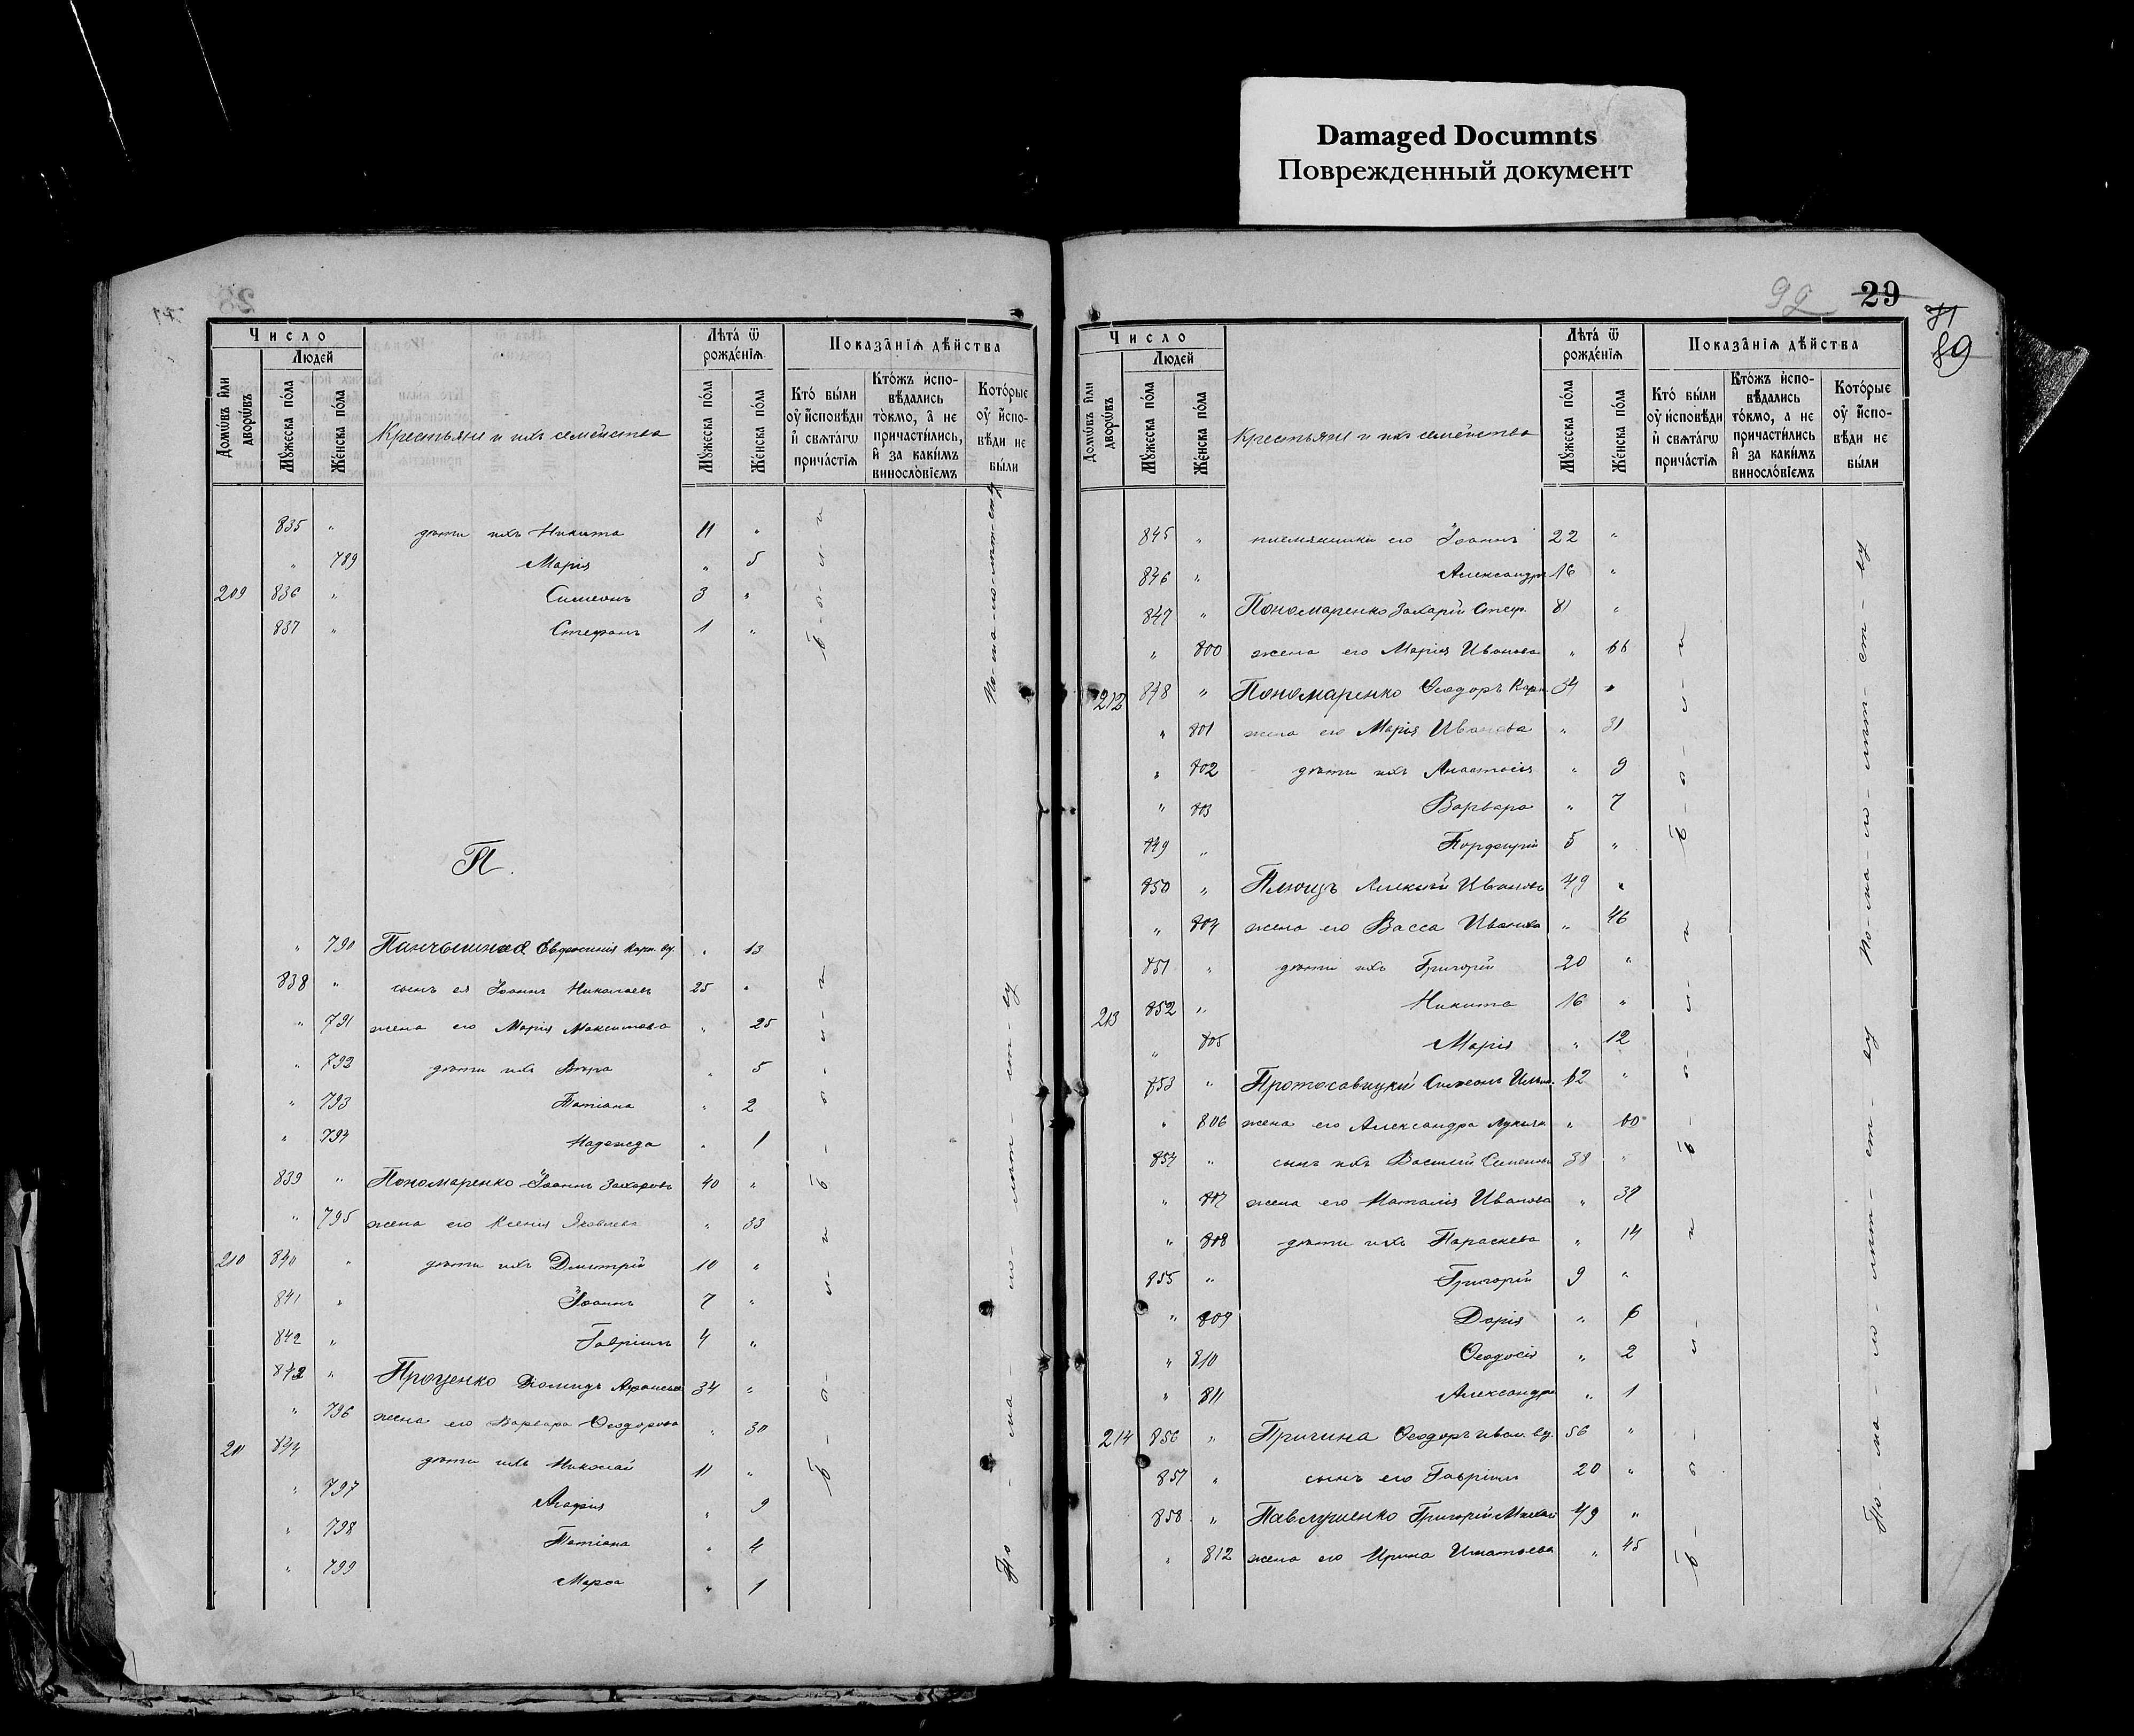 Damaged Documnts
Поврежденный документ
28
Число
Людей
Домѡвъ и҆лѝ дворѡ́въ
Мꙋ́жеска по́ла
Же́нска по́ла
Крестьяне и ихъ семейства
Лѣта̀ ѿ рожде́нїѧ
Мꙋ́жеска по́ла
Же́нска по́ла
Показа̑нїѧ дѣ́йства
Кто̀ бы́ли оу҆ и҆́сповѣди и҆ свѧта́гѡ прича́стїѧ
Кто́жъ и҆спо-вѣ́дались то́кмо, а҆ не причасти́лись, и҆ за каки́мъ винословїемъ
Кото́рые оу҆ и҆́спо-вѣди не бы́ли
835 " дѣти ихъ Никита 11 "
" 789 Марія " 5
209 836 " Симеонъ 3 "
837 " Стефанъ 1 "
б-ы-л-и
П.
" 790 Евфросинія Карп. вд. "
838 " сынъ ея Іоаннъ Николаевъ 25 "
" 791 жена его Марія Максимова " 25
" 792 дѣти ихъ Вѣра " 5
" 793 Татіана " 2
" 794 Надежда " 1
839 " Пономаренко Іоаннъ Захаровъ 40 "
" 795 жена его Ксенія Яковлева " 33
210 840 " дѣти ихъ Димитрій 10 "
841 " Іоаннъ 7 "
842 " Гавріилъ 4 "
843 " Проценко Діомидъ Афанасьев 34 "
" 796 жена его Варвара Ѳеодорова " 30
211 844 дѣти ихъ Николай 11 "
" 797 Агафія " 9
" 798 Татіана " 4
" 799 Марѳа " 1
б - ы - л - и
92 29
71
89
Число
Людей
Домѡвъ и҆лѝ дворѡ́въ
Мꙋ́жеска по́ла
Же́нска по́ла
Крестьяне и ихъ семейства
Лѣта̀ ѿ рожде́нїѧ
Мꙋ́жеска по́ла
Же́нска по́ла
Показа̑нїѧ дѣ́йства
Кто̀ бы́ли оу҆ и҆сповѣди и҆ свѧта́гѡ прича́стїѧ
Кто́жъ и҆спо-вѣ́дались то́кмо, а не причасти́лись и҆ за каки́мъ винословїемъ
Кото́рые оу҆ и҆́спо-вѣди не бы́ли
845 " племянники его Іоаннъ 22 "
846 " Александръ 16 "
847 " Пономаренко Захарій Стеф. 81 "
" 800 жена его Марія Иванова " 66
212 848 " Пономаренко Ѳеодоръ Карп. 34 "
" 801 жена его Марія Иванова " 31
" 802 дѣти ихъ Анастасія " 9
" 803 Варвара " 7
849 " Порфирій 5 "
850 " Плющъ Алексѣй Ивановъ 49 "
" 804 жена его Васса Иванова " 46
851 " дѣти ихъ Григорій 20 "
213 852 " Никита 16 "
" 805 Марія " 12
853 " Протосавицкій Симеонъ 62 "
" 806 жена его Александра Лукьян. " 60
854 " сынъ ихъ Василій Симеонов 38 "
" 807 жена его Наталія Иванова "
" 808 дѣти ихъ Параскева " 14
855 " Григорій 9 "
" 809 Дарія " 6
" 810 Ѳеодосія " 2
" 811 Александра " 1
214 856 " Причина Ѳеодоръ Иван. вд. 56 "
857 " сынъ его Гавріилъ 20 "
858 " Павлушенко Григорій Михаил 49 "
" 812 жена его Ирина Игнатьева " 45
б - ы - л - и